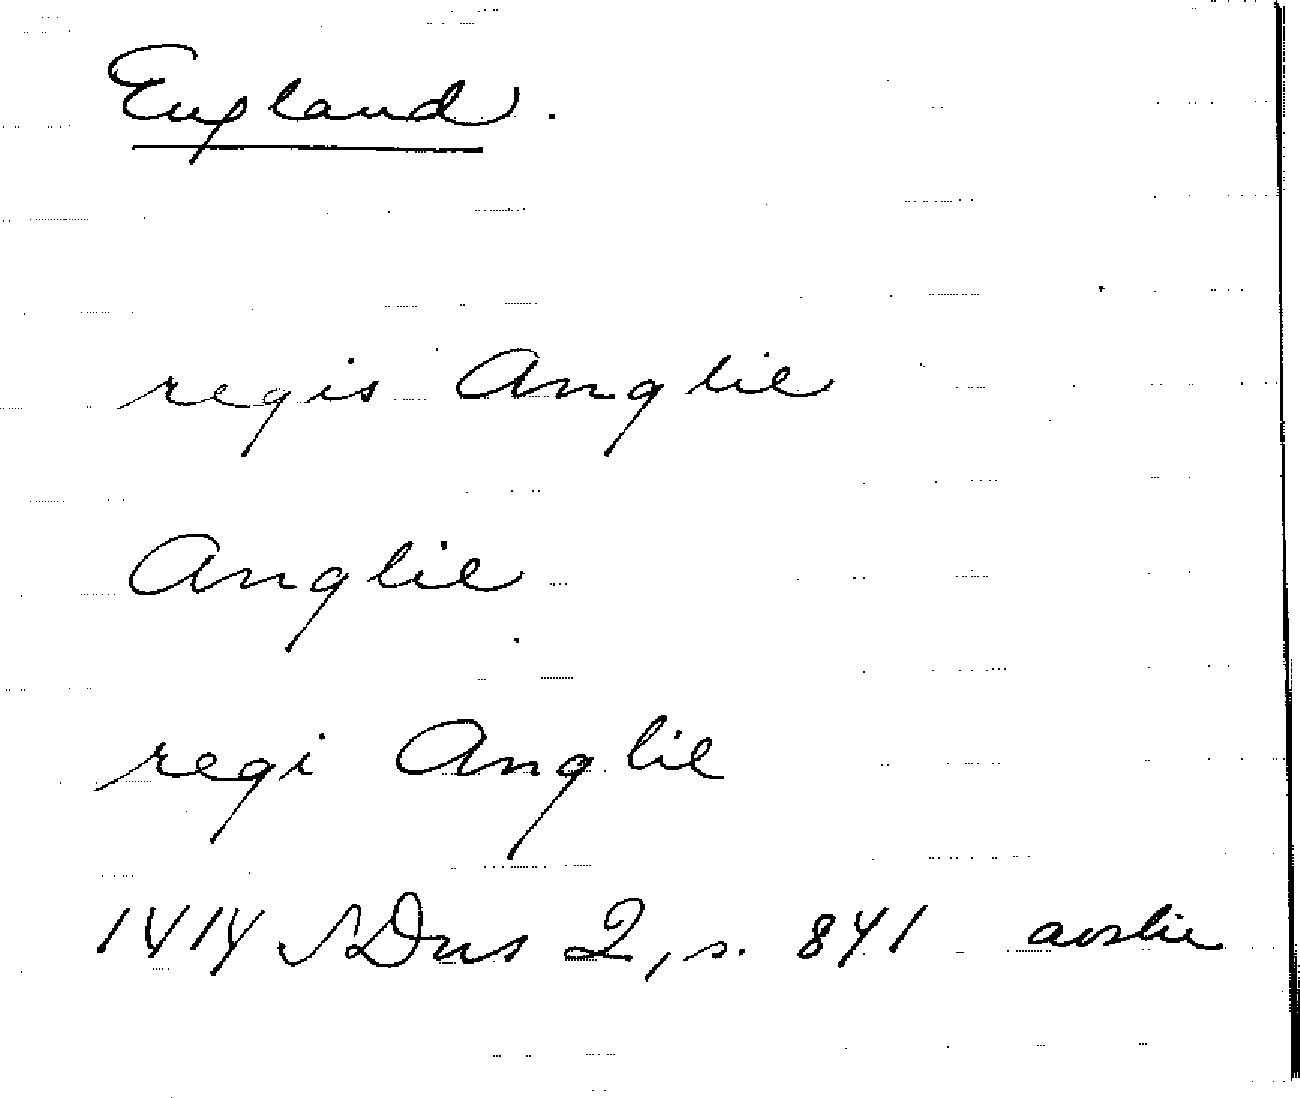 England.
regis Anglie
Anglie
regi Anglie
1414 SDns 2, s. 841 avslie